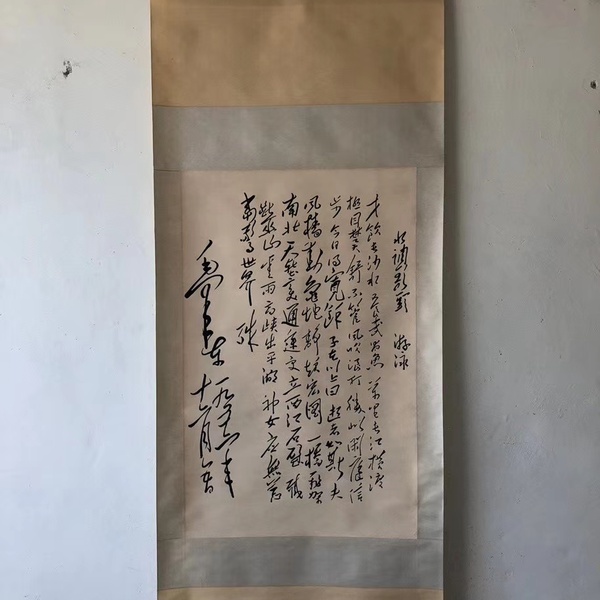 水调歌头 游泳
才饮长沙水又食武昌鱼万里长江横渡
极目楚天舒不管风吹浪打胜似闲庭信
步今日得宽馀子在川上曰逝者如斯夫
风樯动龟蛇静起宏图一桥飞架
南北天堑变通途更立西江石壁截
断巫山云雨高峡出平湖神女应无恙
当惊世界殊
毛泽东 一九五六年
十二月五日